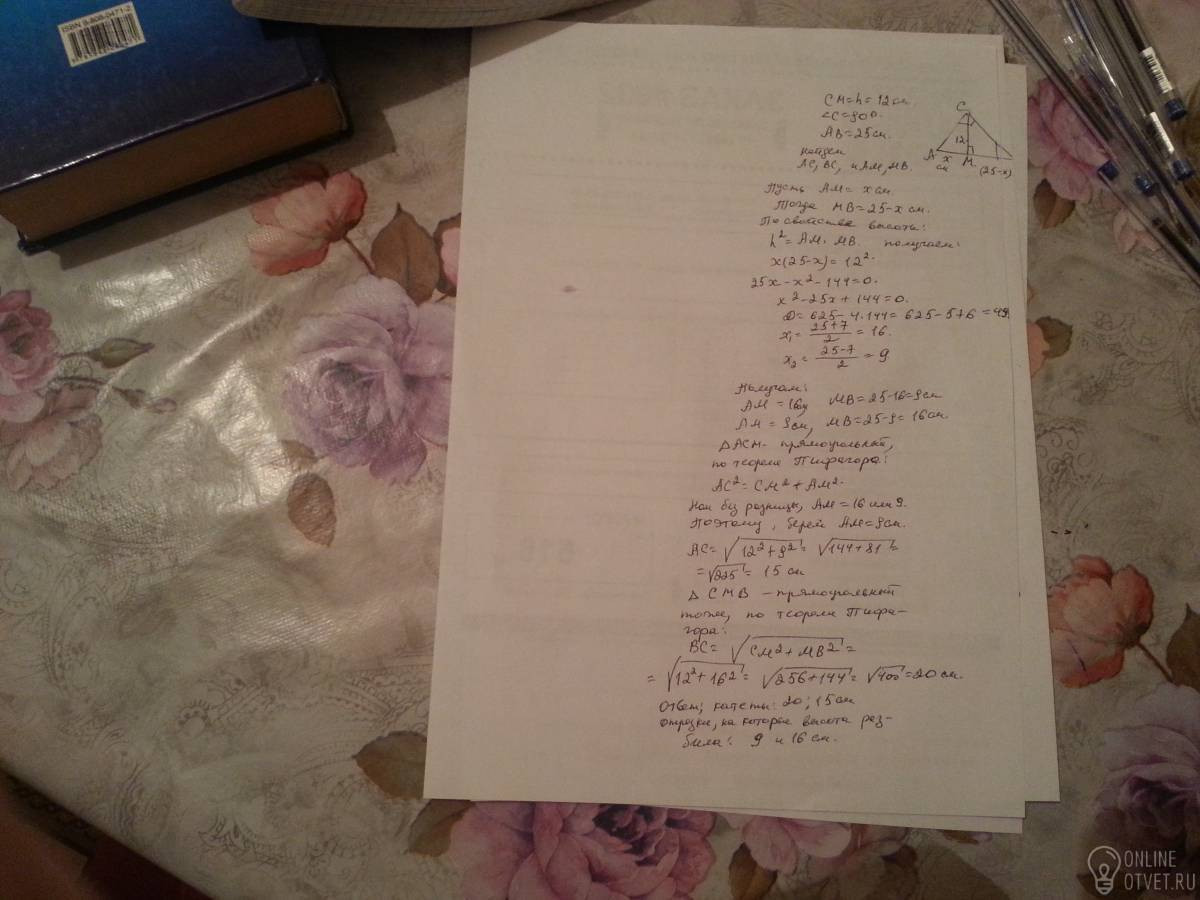 ISBN 9-808-0471-2
CM=h=12см.
∠C=90°.
AB=25см.
найдем
AC, BC, и AM, MB.
C
12
A x M
см (25-x)
Пусть AM= x см.
Тогда MB=25-x см.
По свойстве высоты:
h²= AM · MB. получаем:
x(25-x)= 12².
25x-x²-144=0.
x²-25x+144=0.
D= 625-4·144= 625-576=49.
x₁= (25+7)/2 = 16.
x₂= (25-7)/2 = 9
Получаем:
AM=16см MB=25-16=9см
AM= 9см, MB=25-9=16см.
△ACM- прямоугольный,
по теореме Пифагора:
AC²= CM²+AM².
Нам без разницы, AM=16 или 9.
Поэтому, берем AM=9см.
AC= √12²+9² = √144+81 =
= √225 = 15 см
△ CMB - прямоугольный
тоже, по теореме Пифа-
гора:
BC= √CM²+MB² =
= √12²+16² = √256+144 = √400 =20 см.
Ответ; катеты: 20; 15см
Отрезки, на которые высота раз-
била: 9 и 16 см.
ONLINE
OTVET.RU